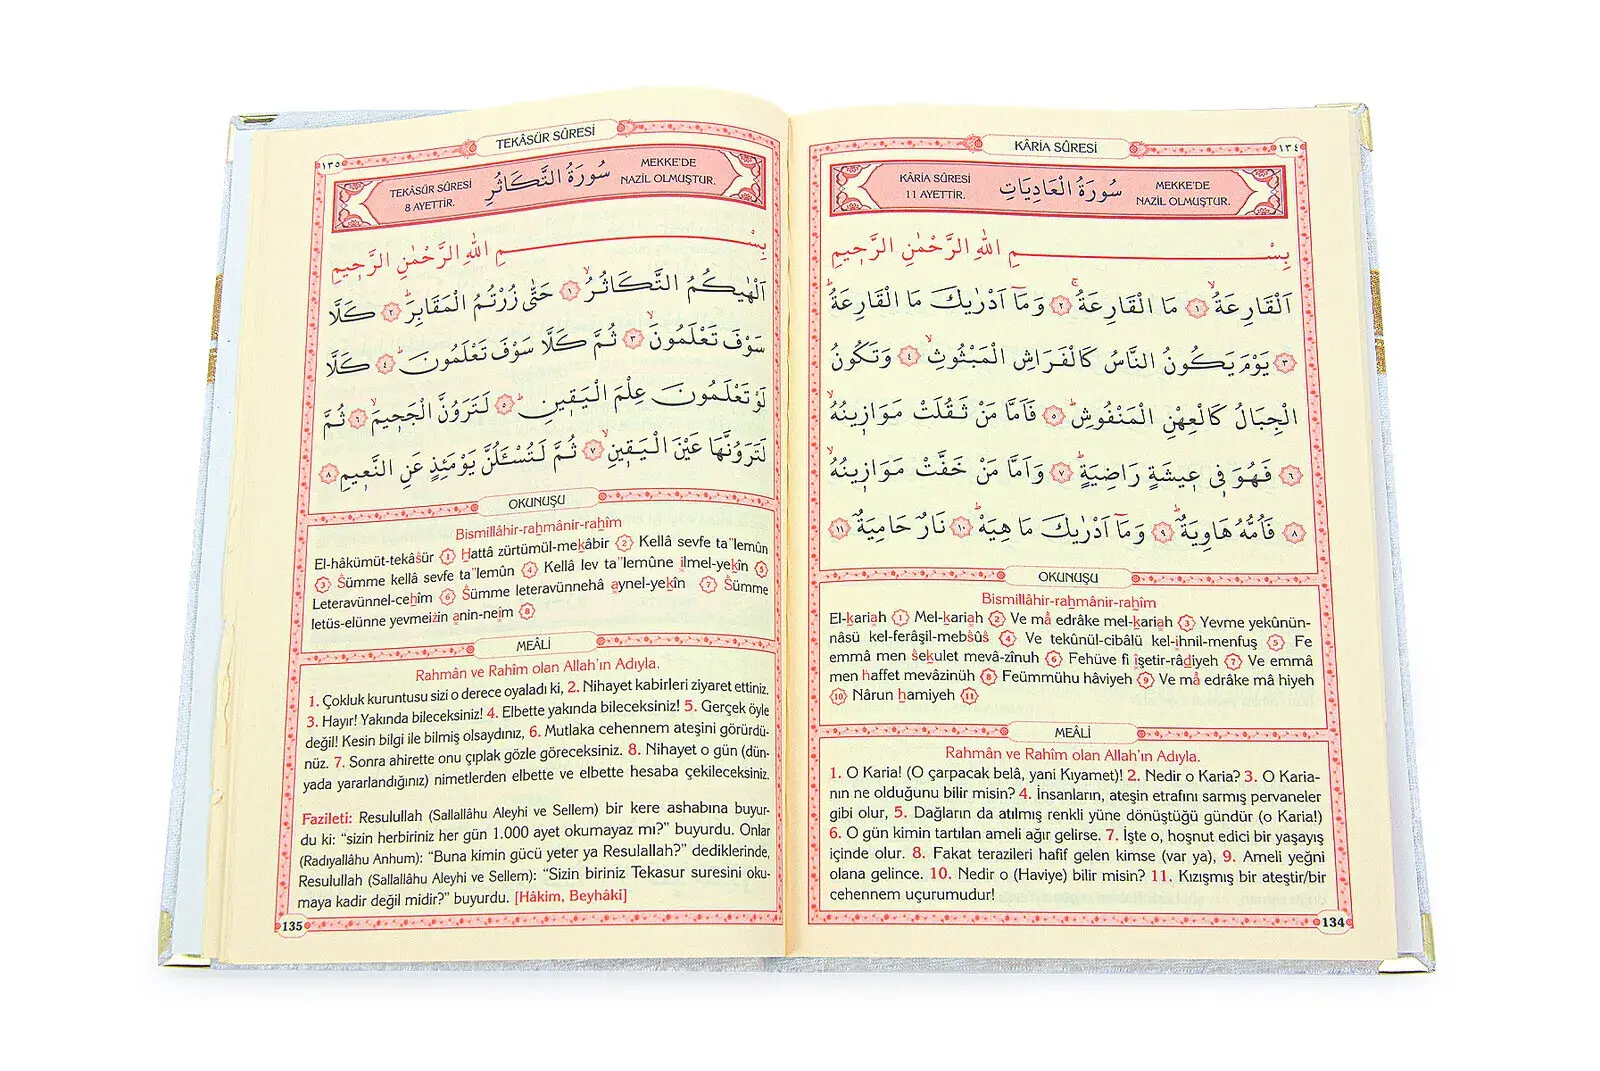 KÂRIA SÛRESİ
١٣٤
KÂRIA SÛRESİ
11 AYETTİR.
سُورَةُ الْعَادِيَاتِ
MEKKE'DE
NAZİL OLMUŞTUR.
بِسْمِ اللهِ الرَّحْمٰنِ الرَّحٖيمِ
اَلْقَارِعَةُۙ ١ مَا الْقَارِعَةُۚ ٢ وَمَٓا اَدْرٰيكَ مَا الْقَارِعَةُۜ
٣ يَوْمَ يَكُونُ النَّاسُ كَالْفَرَاشِ الْمَبْثُوثِۙ ٤ وَتَكُونُ
الْجِبَالُ كَالْعِهْنِ الْمَنْفُوشِۜ ٥ فَاَمَّا مَنْ ثَقُلَتْ مَوَازٖينُهُۙ
٦ فَهُوَ فٖي عٖيشَةٍ رَاضِيَةٍۜ ٧ وَاَمَّا مَنْ خَفَّتْ مَوَازٖينُهُۙ
٨ فَاُمُّهُ هَاوِيَةٌۜ ٩ وَمَٓا اَدْرٰيكَ مَا هِيَهْۜ ١٠ نَارٌ حَامِيَةٌ ١١
OKUNUŞU
Bismillâhir-rahmânir-rahîm
El-kariah 1 Mel-kariah 2 Ve mâ edrâke mel-kariah 3 Yevme yekûnün-
nâsü kel-ferâşil-mebsûs 4 Ve tekûnül-cibâlü kel-ihnil-menfuş 5 Fe
emmâ men sekulet mevâ-zînuh 6 Fehüve fi îşetir-râdiyeh 7 Ve emmâ
men haffet mevâzinüh 8 Feümmühu hâviyeh 9 Ve mâ edrâke mâ hiyeh
10 Nârun hamiyeh 11
MEÂLİ
Rahmân ve Rahîm olan Allah'ın Adıyla.
1. O Karia! (O çarpacak belâ, yani Kıyamet)! 2. Nedir o Karia? 3. O Karia-
nın ne olduğunu bilir misin? 4. İnsanların, ateşin etrafını sarmış pervaneler
gibi olur, 5. Dağların da atılmış renkli yüne dönüştüğü gündür (o Karia!)
6. O gün kimin tartılan ameli ağır gelirse. 7. İşte o, hoşnut edici bir yaşayış
içinde olur. 8. Fakat terazileri hafif gelen kimse (var ya), 9. Ameli yeğni
olana gelince. 10. Nedir o (Haviye) bilir misin? 11. Kızışmış bir ateştir/bir
cehennem uçurumudur!
134
TEKÂSÜR SÛRESİ
١٣٥
TEKÂSÜR SÛRESİ
8 AYETTİR.
سُورَةُ التَّكَاثُرِ
MEKKE'DE
NAZİL OLMUŞTUR.
بِسْمِ اللهِ الرَّحْمٰنِ الرَّحٖيمِ
اَلْهٰيكُمُ التَّكَاثُرُۙ ١ حَتّٰى زُرْتُمُ الْمَقَابِرَۜ ٢ كَلَّا
سَوْفَ تَعْلَمُونَۙ ٣ ثُمَّ كَلَّا سَوْفَ تَعْلَمُونَۜ ٤ كَلَّا
لَوْ تَعْلَمُونَ عِلْمَ الْيَقٖينِۜ ٥ لَتَرَوُنَّ الْجَحٖيمَۙ ٦ ثُمَّ
لَتَرَوُنَّهَا عَيْنَ الْيَقٖينِۙ ٧ ثُمَّ لَتُسْـَٔلُنَّ يَوْمَئِذٍ عَنِ النَّعٖيمِ ٨
OKUNUŞU
Bismillâhir-rahmânir-rahîm
El-hâkümüt-tekâsür 1 Hattâ zürtümül-mekâbir 2 Kellâ sevfe ta"lemûn
3 Sümme kellâ sevfe ta"lemûn 4 Kellâ lev ta"lemûne ilmel-yekîn 5
Leteravünnel-cehîm 6 Sümme leteravünnehâ aynel-yekîn 7 Sümme
letüs-elünne yevmeizin anin-neim 8
MEÂLİ
Rahmân ve Rahîm olan Allah'ın Adıyla.
1. Çokluk kuruntusu sizi o derece oyaladı ki, 2. Nihayet kabirleri ziyaret ettiniz.
3. Hayır! Yakında bileceksiniz! 4. Elbette yakında bileceksiniz! 5. Gerçek öyle
değil! Kesin bilgi ile bilmiş olsaydınız, 6. Mutlaka cehennem ateşini görürdü-
nüz. 7. Sonra ahirette onu çıplak gözle göreceksiniz. 8. Nihayet o gün (dün-
yada yararlandığınız) nimetlerden elbette ve elbette hesaba çekileceksiniz.
Fazileti: Resulullah (Sallallâhu Aleyhi ve Sellem) bir kere ashabına buyur-
du ki: “sizin herbiriniz her gün 1.000 ayet okumayaz mı?” buyurdu. Onlar
(Radıyallâhu Anhum): “Buna kimin gücü yeter ya Resulallah?” dediklerinde,
Resulullah (Sallallâhu Aleyhi ve Sellem): “Sizin biriniz Tekasur suresini oku-
maya kadir değil midir?” buyurdu. [Hâkim, Beyhâki]
135